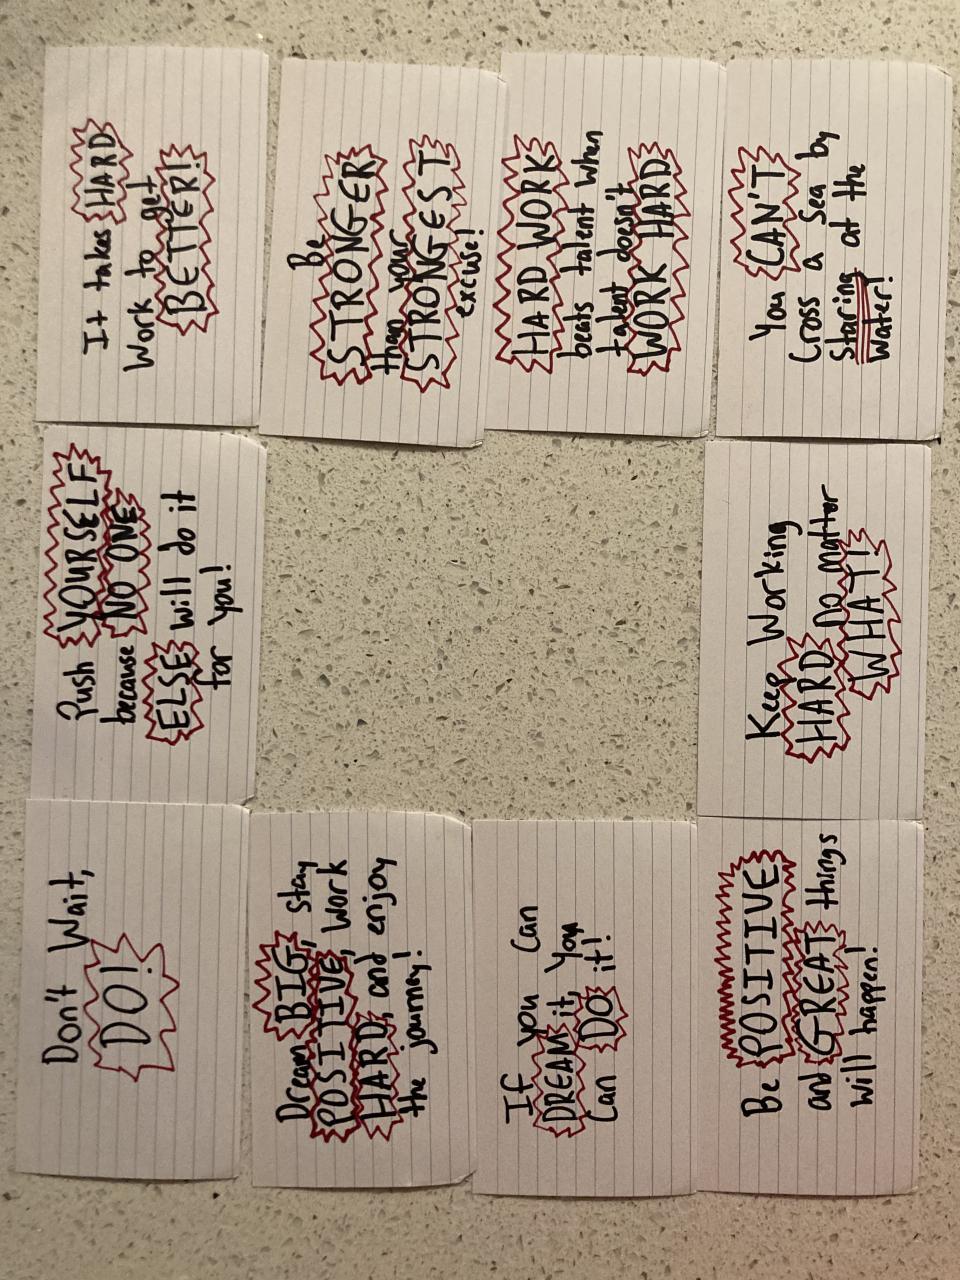 Don't Wait,
DO!
Push YOURSELF
because NO ONE
ELSE will do it
for you!
It takes HARD
Work to get
BETTER!
Dream BIG, stay
POSITIVE, work
HARD, and enjoy
the journey!
Be
STRONGER
than your
STRONGEST
excuse!
If you can
DREAM it, you
Can DO it!
HARD WORK
beats talent when
talent doesn't
WORK HARD
Be POSITIVE
and GREAT things
will happen!
Keep Working
HARD no matter
WHAT!
You CAN'T
Cross a Sea by
Staring at the
Water!